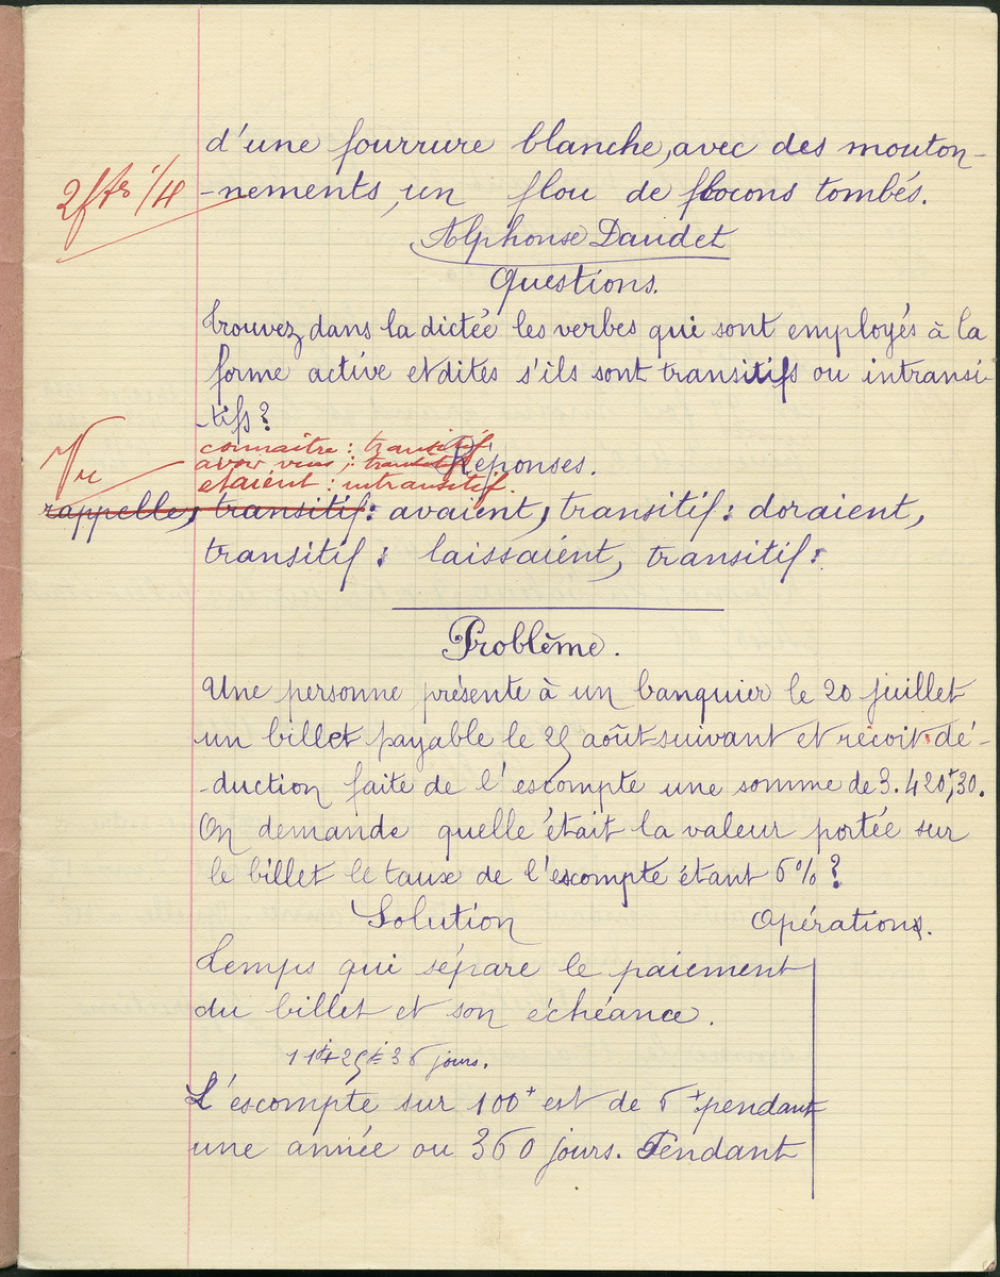 d'une fourrure blanche, avec des mouton-
2 ftes 1/4
-nements, un flou de flocons tombés.
Alphonse Daudet
Questions.
Trouvez dans la dictée les verbes qui sont employés à la
forme active et dites s'ils sont transitifs ou intransi-
-tifs ?
Vu
connaître : transitif
avoir vus : transitif
Réponses.
étaient : intransitif.
rappelle, transitif : avaient, transitif : doraient,
transitif : laissaient, transitif :
Problème.
Une personne présente à un banquier le 20 juillet
un billet payable le 25 août suivant et reçoit dé-
-duction faite de l'escompte une somme de 3.420f,30.
On demande quelle était la valeur portée sur
le billet le taux de l'escompte étant 6% ?
Solution Opérations.
Temps qui sépare le paiement
du billet et son échéance.
11j + 25j = 36 jours.
L'escompte sur 100f est de 6f pendant
une année ou 360 jours. Pendant